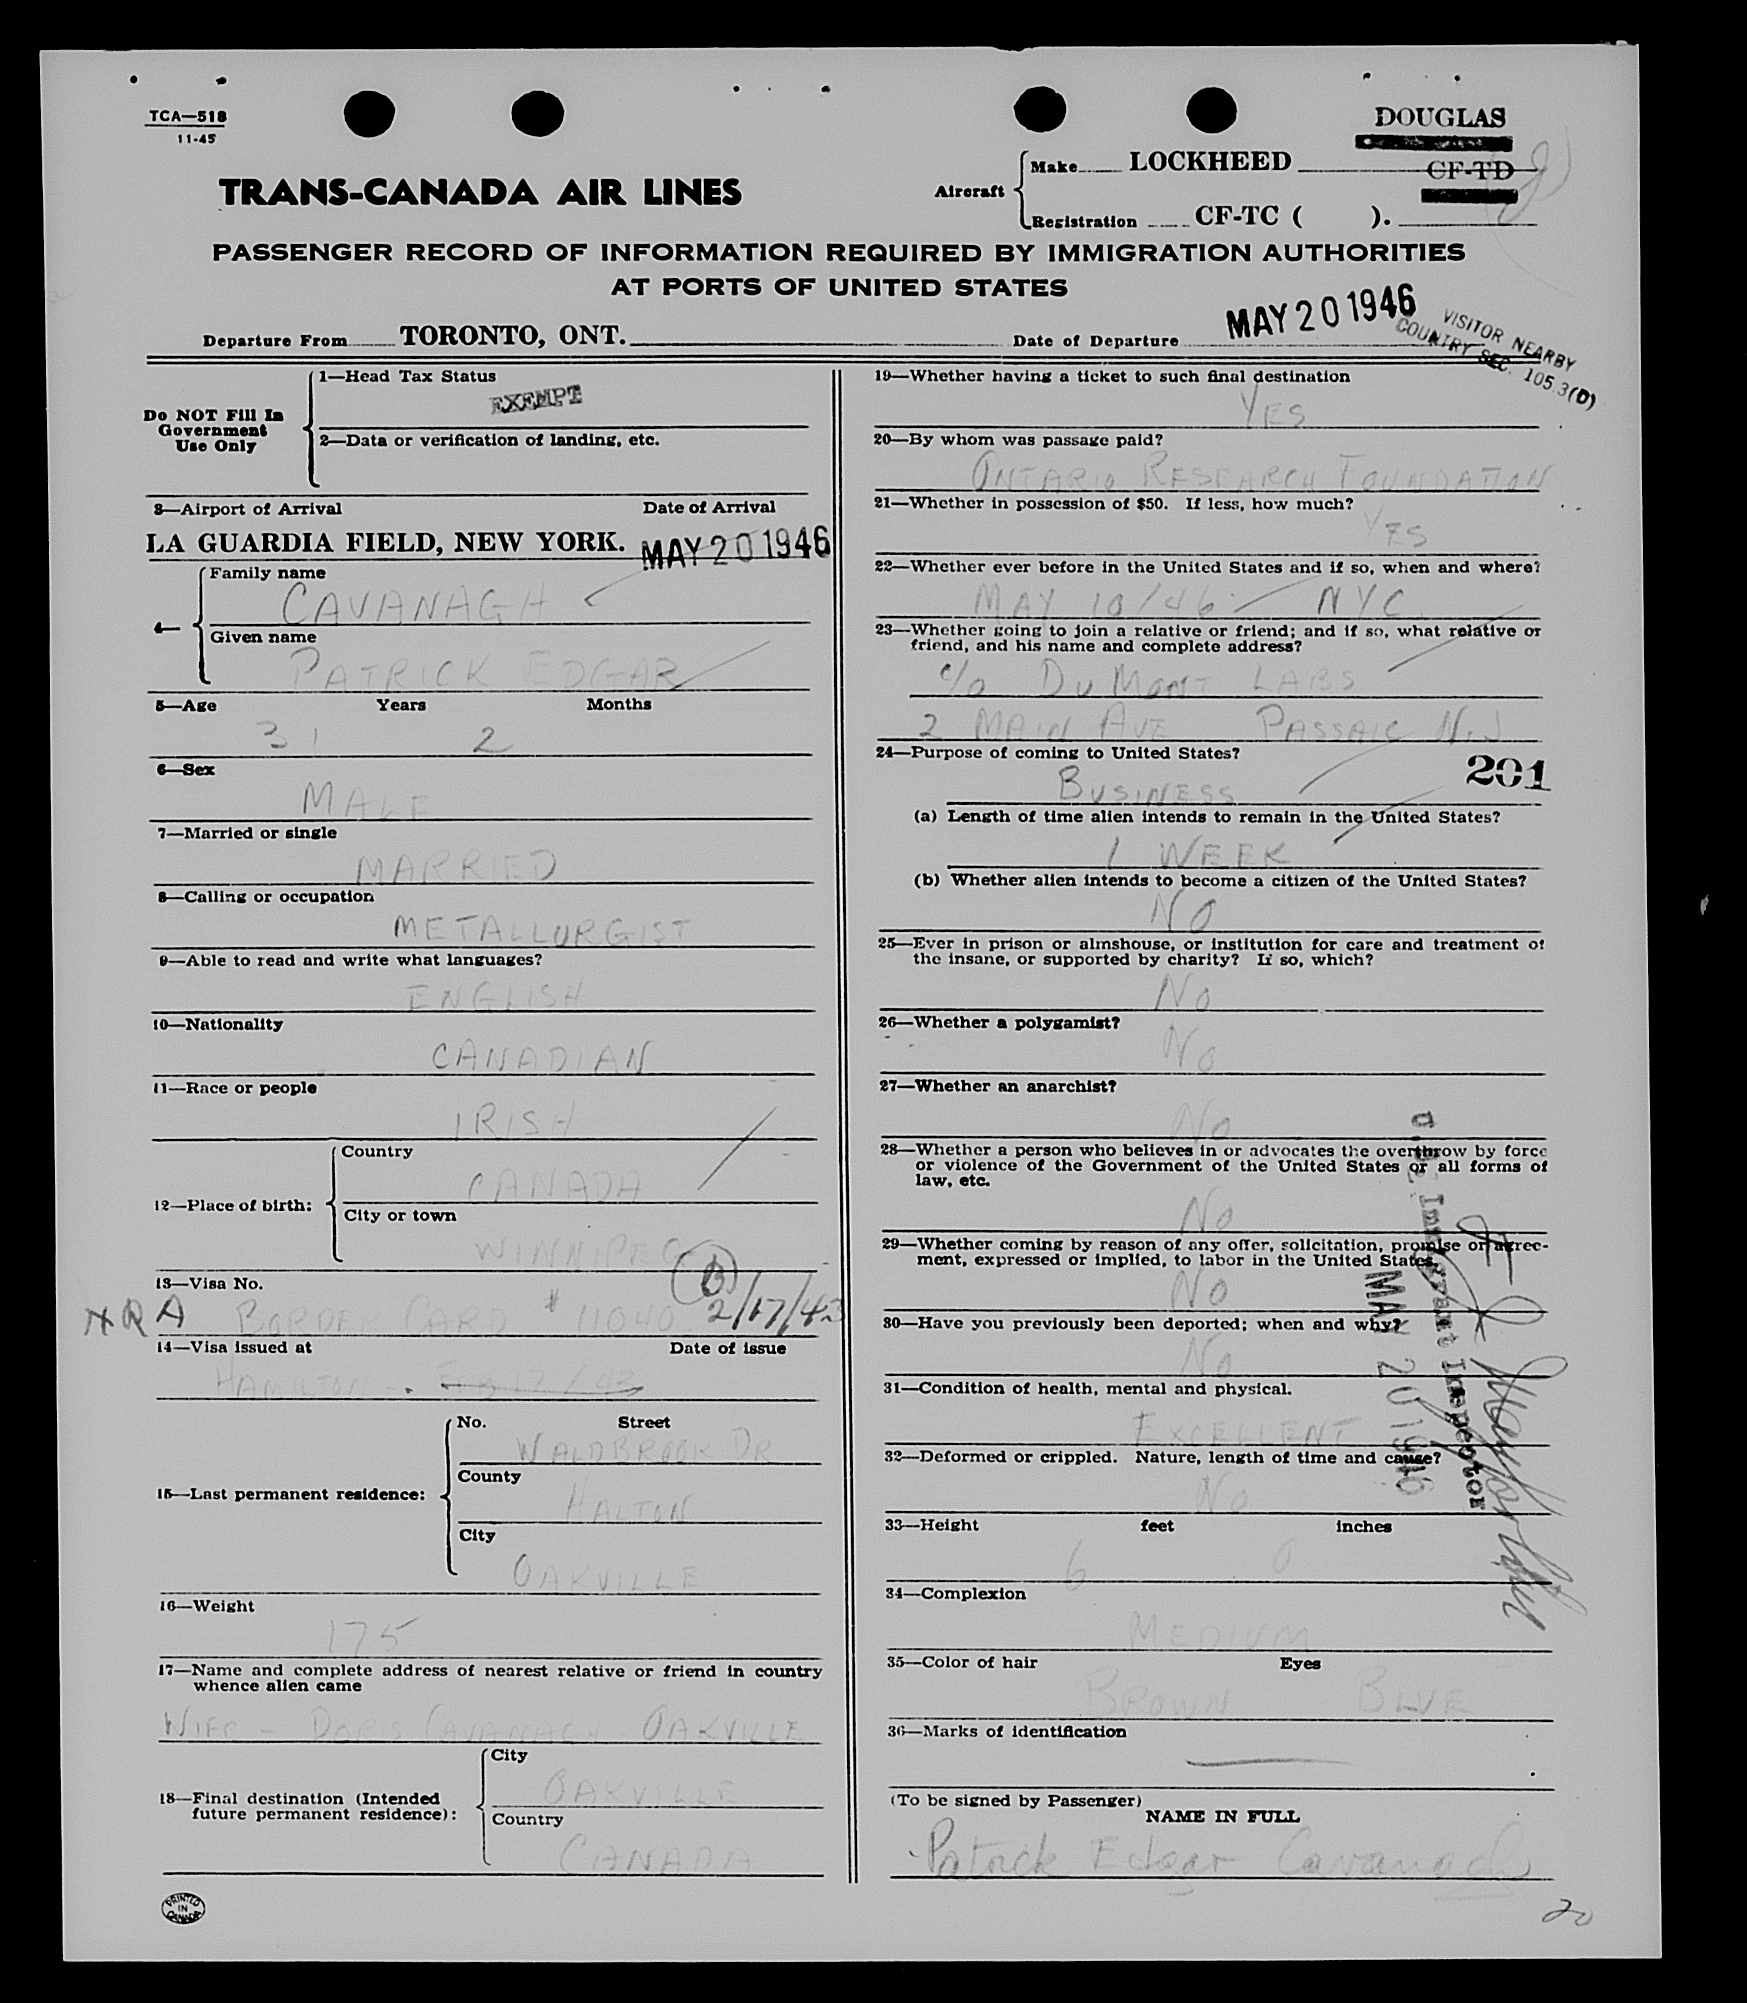 TCA—518
11-45
DOUGLAS
TRANS-CANADA AIR LINES
Aircraft
Make LOCKHEED CF-TD
Registration CF-TC ( ).
PASSENGER RECORD OF INFORMATION REQUIRED BY IMMIGRATION AUTHORITIES
AT PORTS OF UNITED STATES
Departure From TORONTO, ONT. Date of Departure MAY 20 1946
VISITOR NEARBY
COUNTRY SEC. 105.3(D)
Do NOT Fill In
Government
Use Only
1—Head Tax Status
EXEMPT
2—Data or verification of landing, etc.
3—Airport of Arrival Date of Arrival
LA GUARDIA FIELD, NEW YORK. MAY 20 1946
4—
Family name
CAVANAGH
Given name
PATRICK EDGAR
5—Age Years Months
31 2
6—Sex
MALE
7—Married or single
MARRIED
8—Calling or occupation
METALLURGIST
9—Able to read and write what languages?
ENGLISH
10—Nationality
CANADIAN
11—Race or people
IRISH
12—Place of birth:
Country
CANADA
City or town
WINNIPEG
13—Visa No.
BORDER CARD # 11040 2/17/43
14—Visa issued at Date of issue
HAMILTON
15—Last permanent residence:
No. Street
WALDBROOK DR
County
HALTON
City
OAKVILLE
16—Weight
175
17—Name and complete address of nearest relative or friend in country
whence alien came
WIFE - DORIS CAVANAGH OAKVILLE
18—Final destination (Intended
future permanent residence):
City
OAKVILLE
Country
CANADA
PRINTED
IN
CANADA
19—Whether having a ticket to such final destination
YES
20—By whom was passage paid?
ONTARIO RESEARCH FOUNDATION
21—Whether in possession of $50. If less, how much?
YES
22—Whether ever before in the United States and if so, when and where?
MAY 10/46 NYC
23—Whether going to join a relative or friend; and if so, what relative or
friend, and his name and complete address?
c/o DUMONT LABS
2 MAIN AVE PASSAIC N.J
24—Purpose of coming to United States?
201
BUSINESS
(a) Length of time alien intends to remain in the United States?
1 WEEK
(b) Whether alien intends to become a citizen of the United States?
NO
25—Ever in prison or almshouse, or institution for care and treatment of
the insane, or supported by charity? If so, which?
NO
26—Whether a polygamist?
NO
27—Whether an anarchist?
NO
28—Whether a person who believes in or advocates the overthrow by force
or violence of the Government of the United States or all forms of
law, etc.
NO
29—Whether coming by reason of any offer, solicitation, promise or agree-
ment, expressed or implied, to labor in the United States.
NO
30—Have you previously been deported; when and why?
NO
U. S. Immigrant Inspector
MAY 20 1946
31—Condition of health, mental and physical.
EXCELLENT
32—Deformed or crippled. Nature, length of time and cause?
NO
33—Height feet inches
6 0
34—Complexion
MEDIUM
35—Color of hair Eyes
BROWN BLUE
36—Marks of identification
(To be signed by Passenger)
NAME IN FULL
Patrick Edgar Cavanagh
20